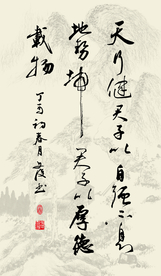 天行健君子以自强不息
地势坤君子以厚德
载物
丁酉初春月霞书